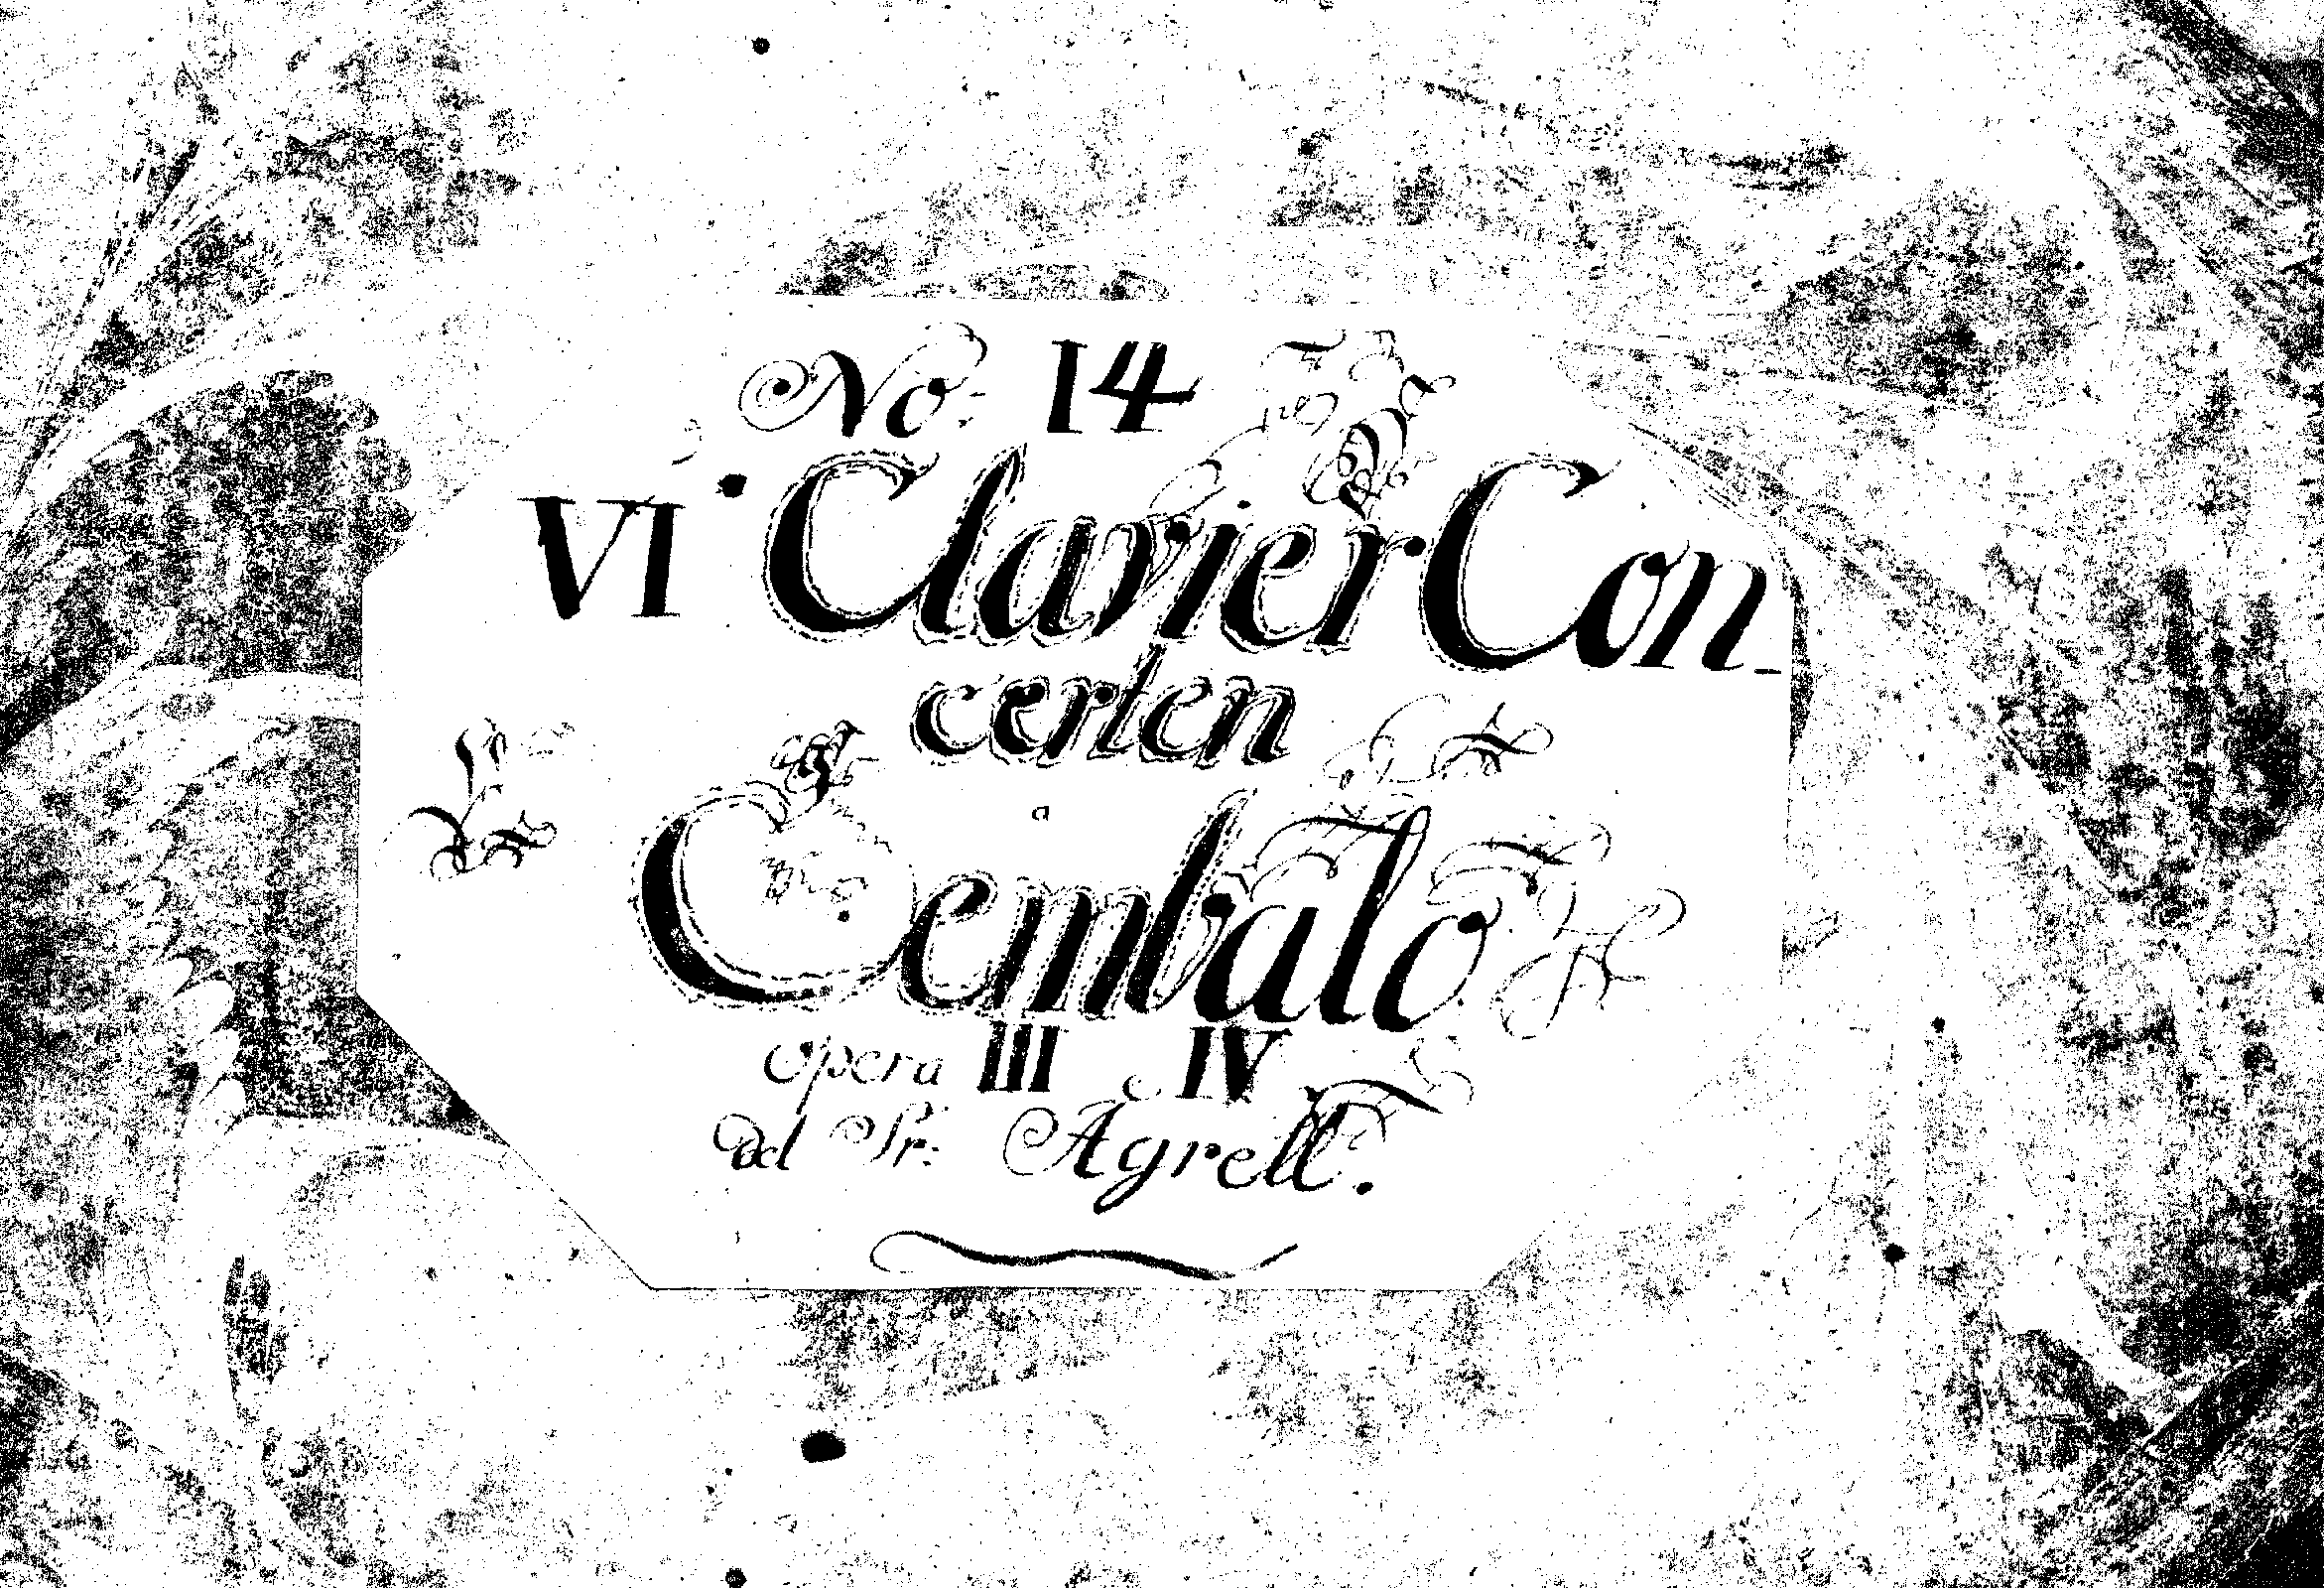 No: 14
VI Clavier Con-
certen
a
Cembalo
opera III e IV
Del Sr: Agrell.